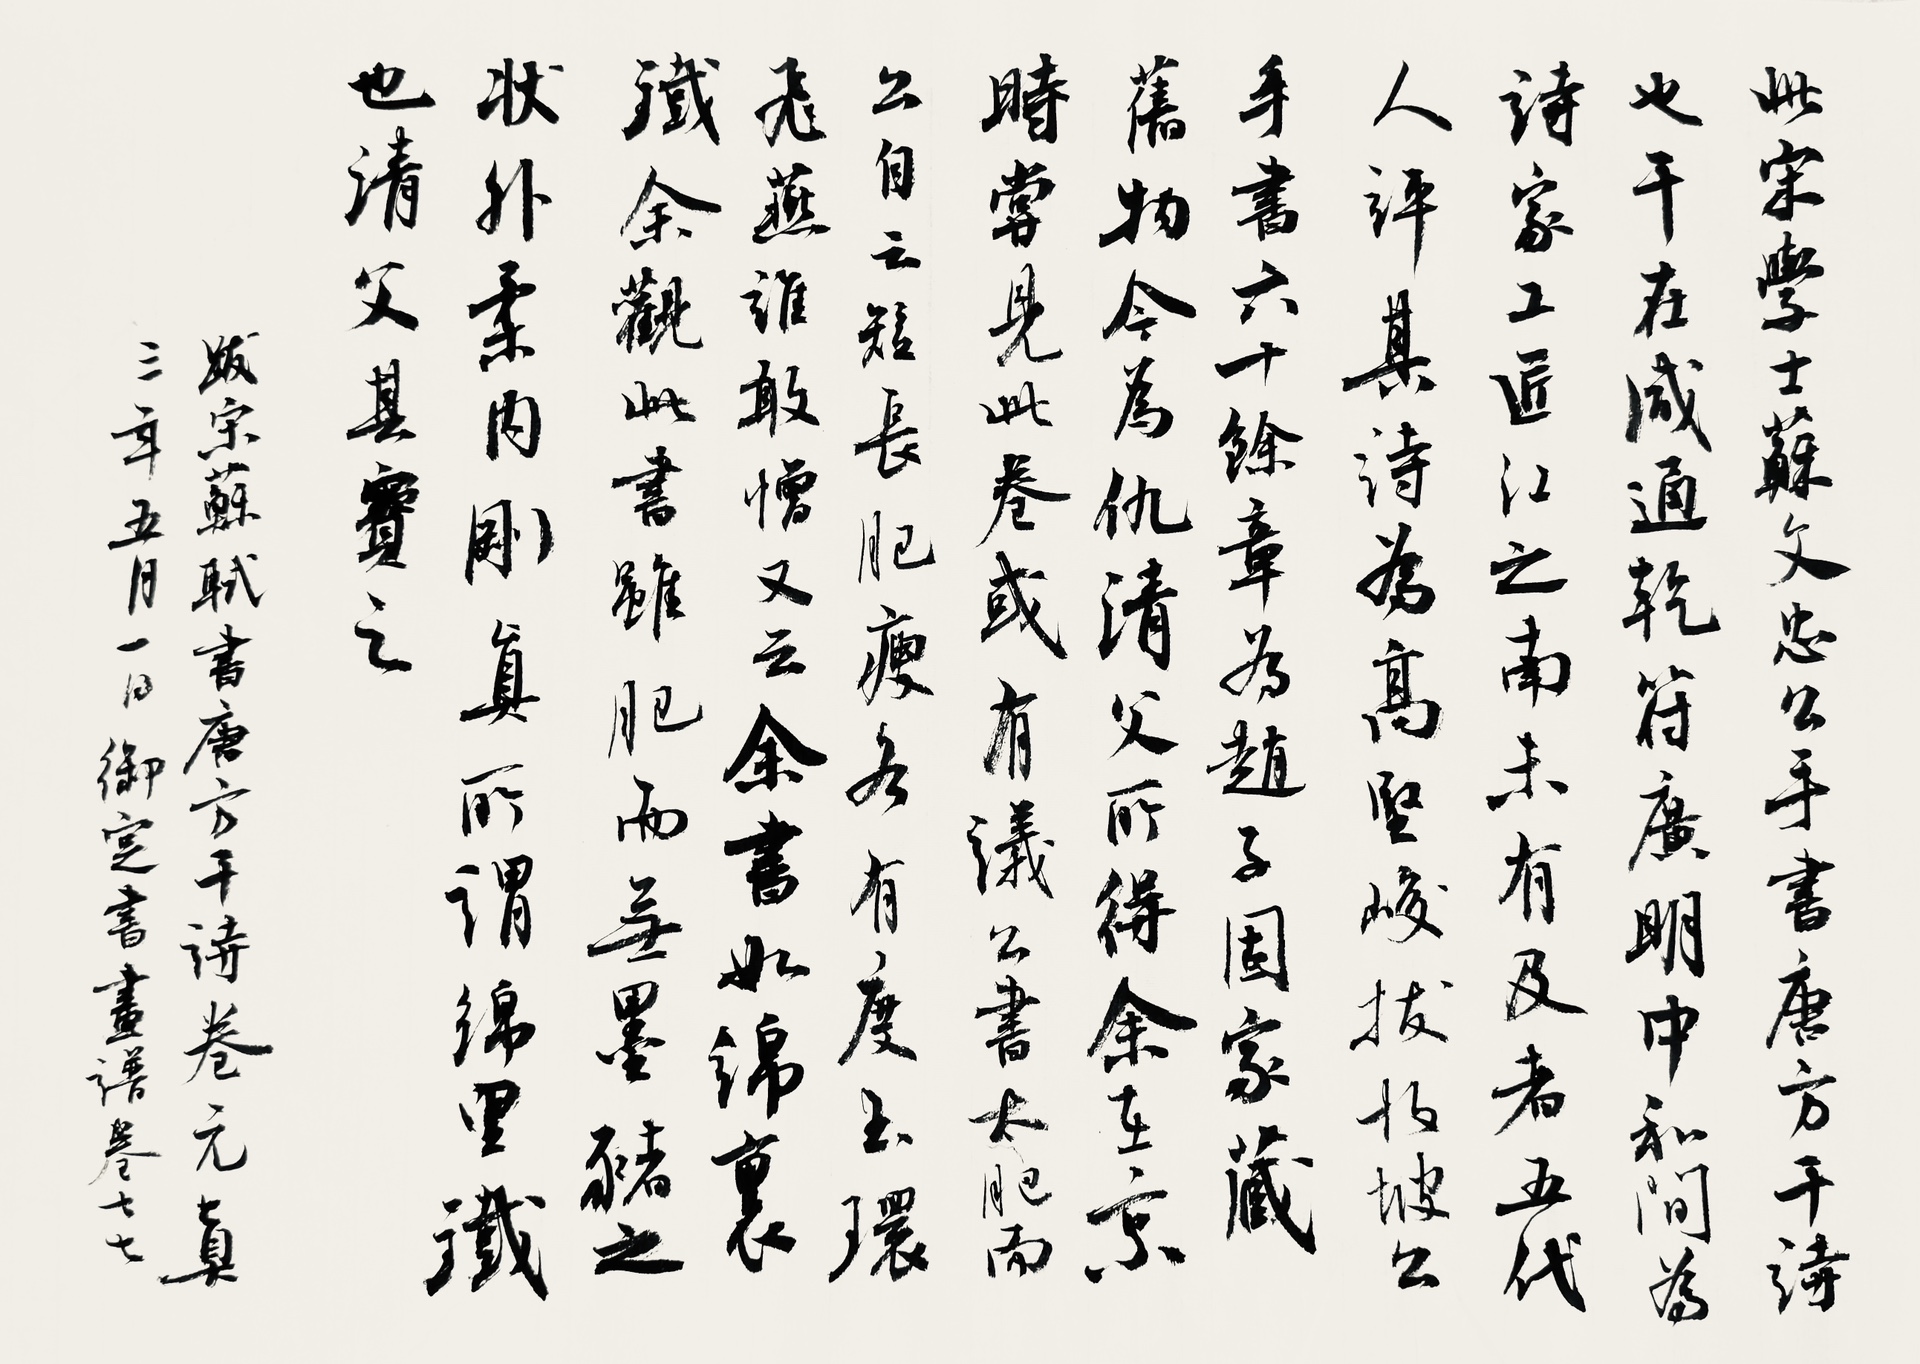 此宋學士蘇文忠公手書唐方干詩
也干在咸通乾符廣明中和間為
詩家工匠江之南未有及者五代
人評其詩為高堅峻拔故坡公
手書六十餘章為趙子固家藏
舊物今為仇清父所得余在京
時嘗見此卷或有議公書太肥而
公自云短長肥瘦各有度玉環
飛燕誰敢憎又云余書如綿裏
鐵余觀此書雖肥而無墨豬之
狀外柔內剛真所謂綿里鐵
也清父其寶之
跋宋蘇軾書唐方干詩卷元貞
三年五月一日 御定書畫譜卷七七